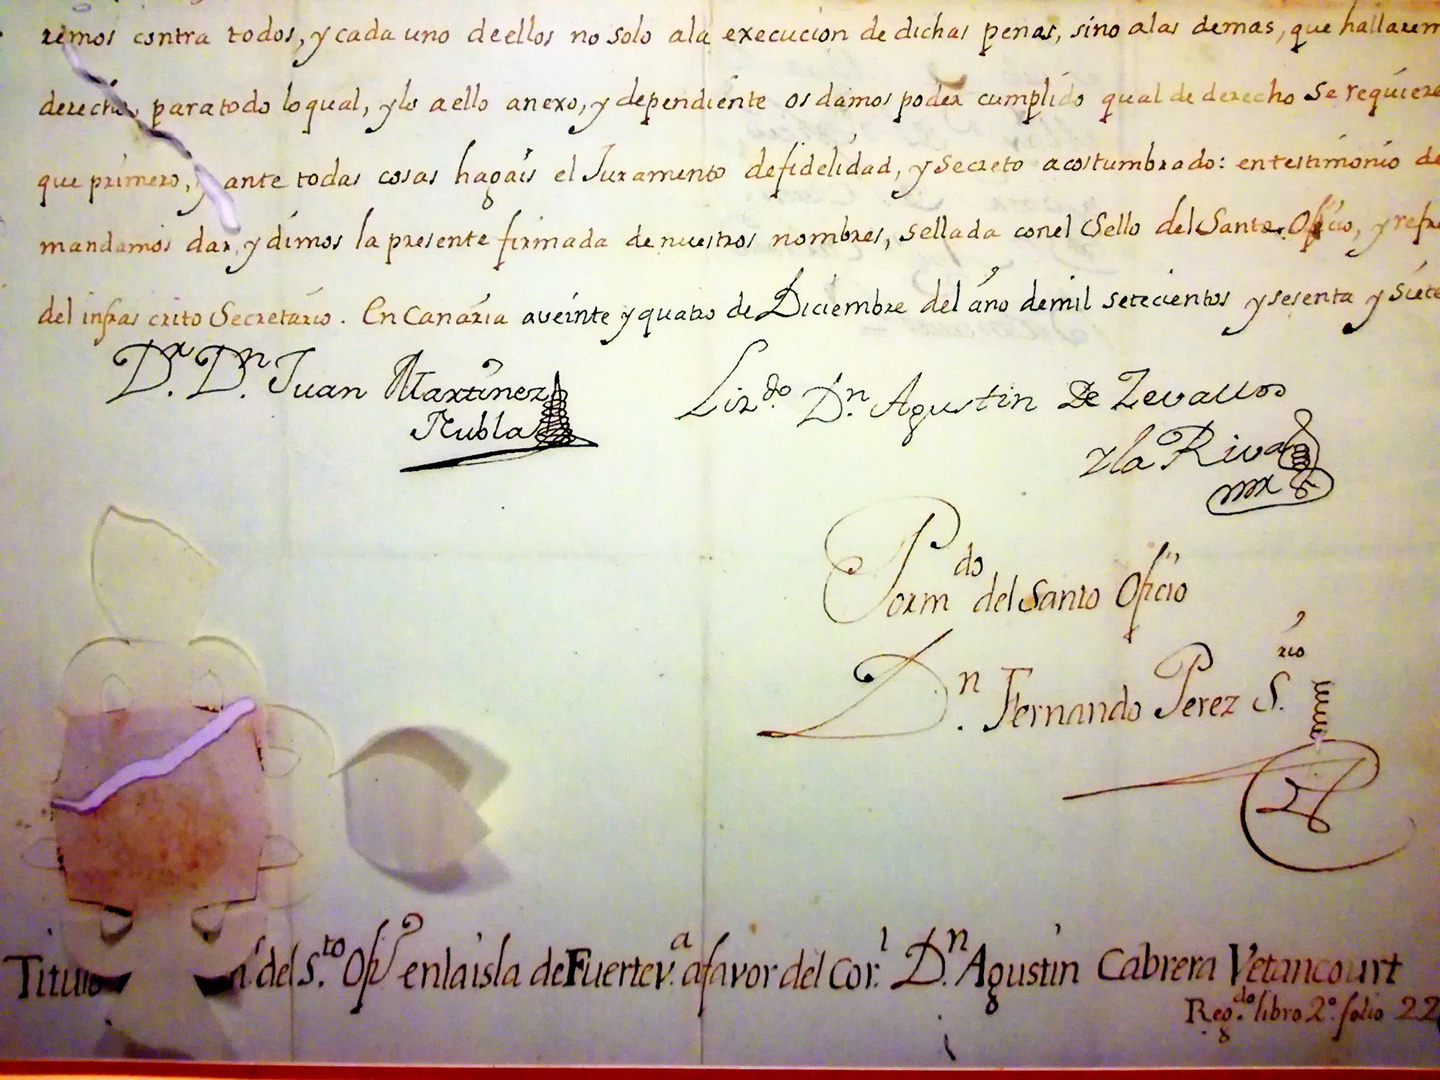 remos contra todos, y cada uno deellos no solo ala execucion de dichas penas, sino alas demas, que hallarem
derecho, paratodo loqual, ylo aello anexo, y dependiente os damos poder cumplido qual de derecho se requiere
que primero, y ante todas cosas hagais el Juramento defidelidad, y Secreto acostumbrado: entestimonio de
mandamos dar, y dimos la presente firmada denuestros nombres, sellada conel Sello del Santo Oficio, y refre
del infrascrito Secretario. En Canária aveinte y quatro de Diciembre del año demil setecientos y sesenta y Siete
Dr. Dn. Juan Martinez
Nubla
Lizdo. Dn. Agustin De Zevallos
La Riva
Por mdo del Santo Oficio
Dn. Fernando Perez Srio.
Titulo del S.to Ofº enlaisla deFuertev.a afavor del Cor.l D.n Agustin Cabrera Vetancourt
Reg.do libro 2º folio 22